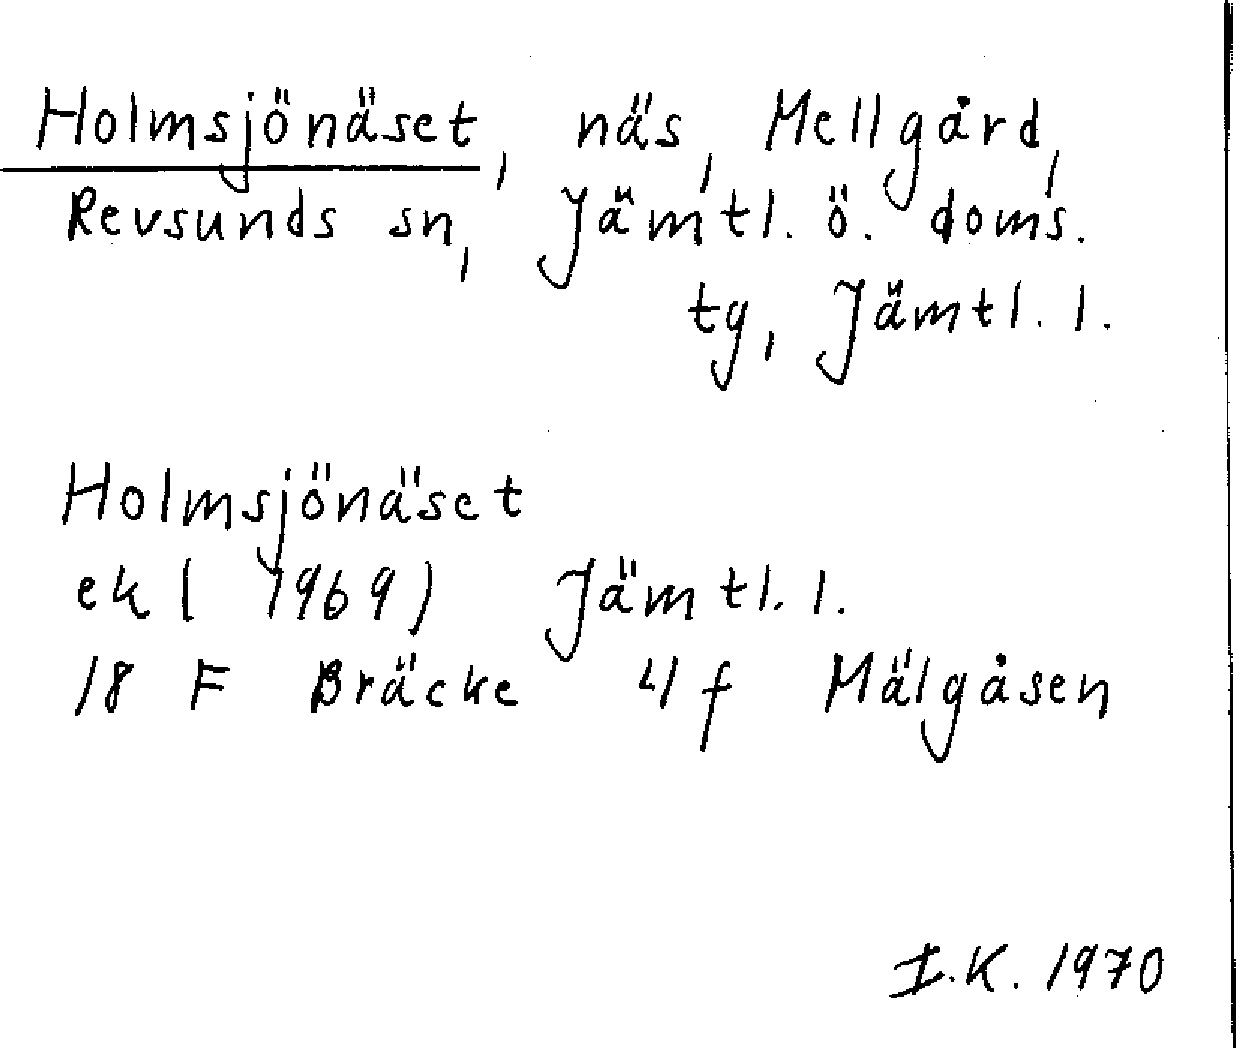 Holmsjönäset, näs, Mellgård,
Revsunds sn, Jämtl. ö. doms.
tg, Jämtl. l.
Holmsjönäset
ek ( 1969) Jämtl. l.
18 F Bräcke 4 f Mälgåsen
I.K. 1970